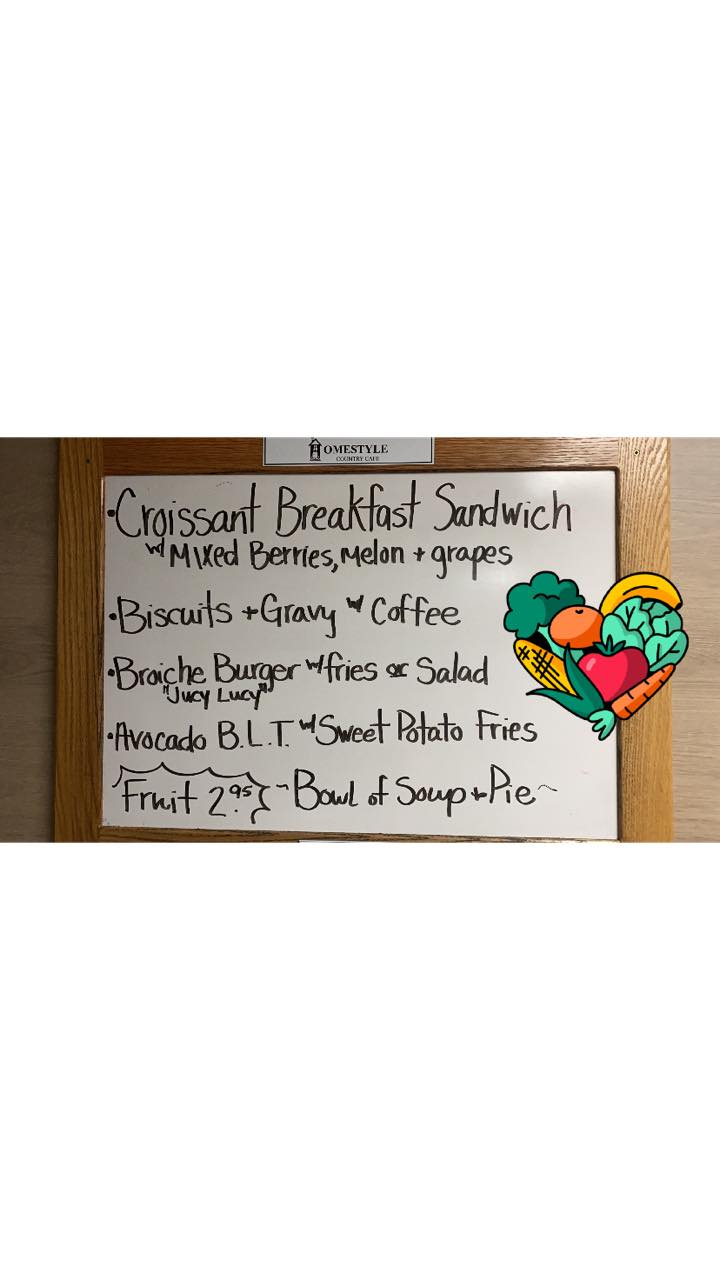 HOMESTYLE
COUNTRY CAFE
·Croissant Breakfast Sandwich
w/ Mixed Berries, Melon + grapes
·Biscuits + Gravy w/ Coffee
·Broiche Burger w/ fries or Salad
"Jucy Lucy"
·Avocado B.L.T. w/ Sweet Potato Fries
Fruit 2.95 ~Bowl of Soup + Pie~